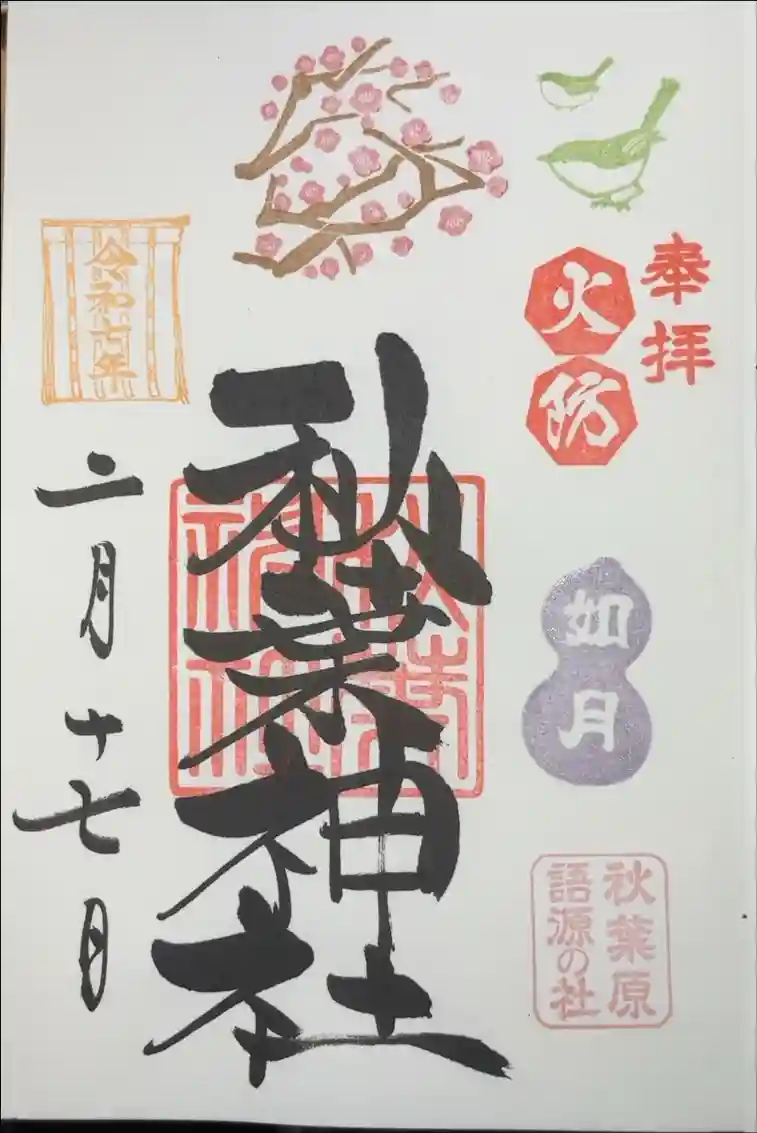 奉拝
火防
如月
秋葉原
語源の社
秋葉神社
秋葉
神社
令和七年
二月十七日